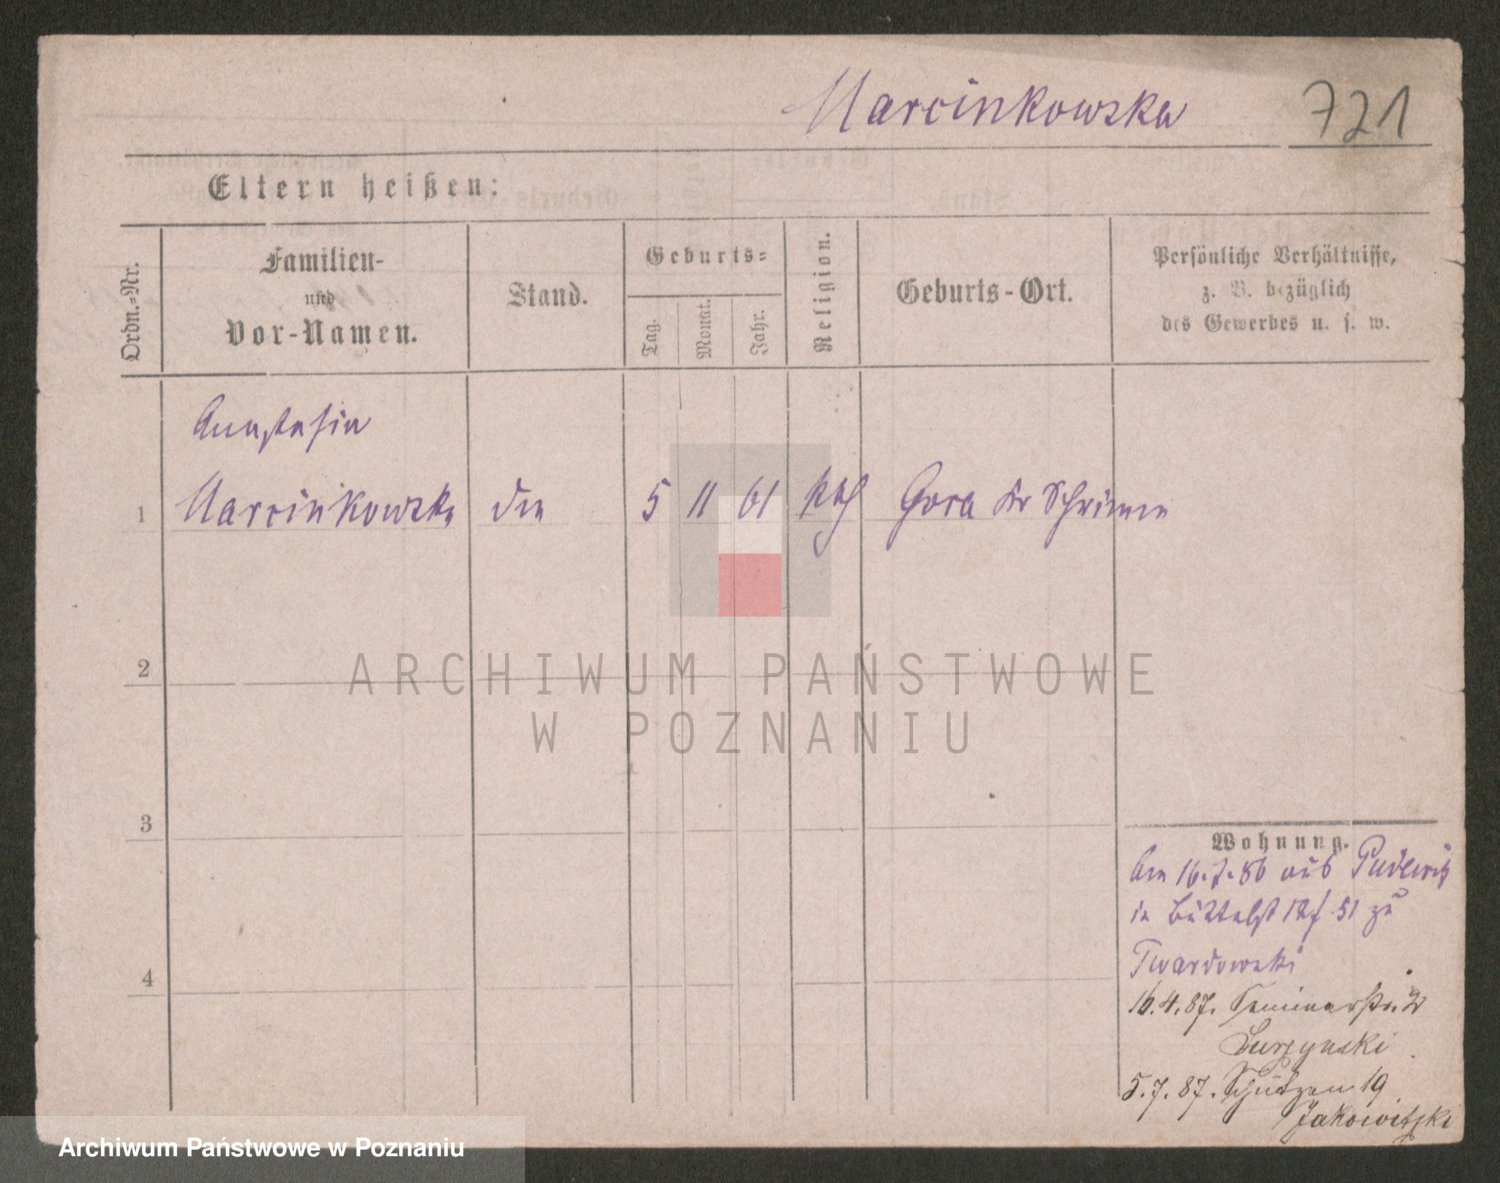 Marcinkowska
721
Eltern heißen:
Ordn.-Nr.
Familien-
und
Vor-Namen.
Stand.
Geburts-
Tag.
Monat.
Jahr.
Religion.
Geburts-Ort.
Persönliche Verhältnisse,
z. B. bezüglich
des Gewerbes u. s. w.
Anastasia
1 Marcinkowska 5 11 61 kth Gora Kr Schrimm
2
ARCHIWUM PAŃSTWOWE
W POZNANIU
3
Wohnung.
Am 16.7.86 aus Pudewitz
in 51 zu
Twardowski
4
16.4.87. Seminarstr. 2
5.7.87. Schützen 19
Jakowitzki
Archiwum Państwowe w Poznaniu